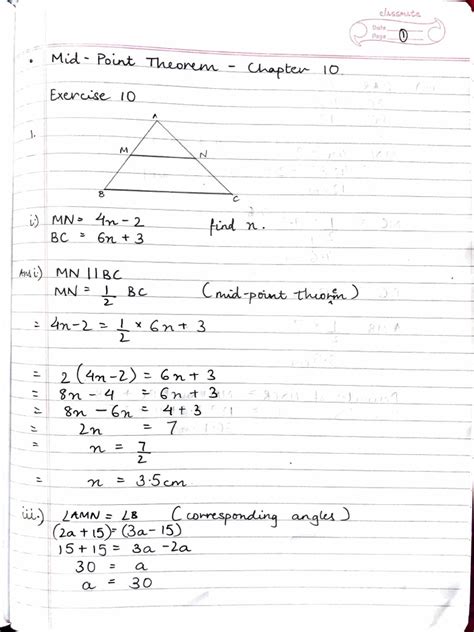 classmate
Date
Page 1
• Mid-Point Theorem - Chapter 10.
Exercise 10
1.
A
M N
B C
i) MN = 4n - 2 find n.
BC = 6n + 3
Ans i) MN || BC
MN = 1/2 BC (mid-point theorem)
= 4n-2 = 1/2 × 6n + 3
= 2(4n-2) = 6n + 3
= 8n - 4 = 6n + 3
= 8n - 6n = 4 + 3
= 2n = 7
= n = 7/2
= n = 3.5cm
iii.) ∠AMN = ∠B (corresponding angles)
(2a + 15) = (3a - 15)
15 + 15 = 3a - 2a
30 = a
a = 30